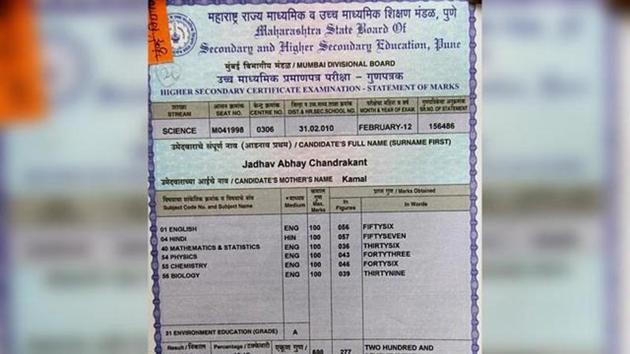 महाराष्ट्र राज्य माध्यमिक व उच्च माध्यमिक शिक्षण मंडळ, पुणे
Maharashtra State Board Of
Secondary and Higher Secondary Education, Pune
मुंबई विभागीय मंडळ / MUMBAI DIVISIONAL BOARD
उच्च माध्यमिक प्रमाणपत्र परीक्षा - गुणपत्रक
HIGHER SECONDARY CERTIFICATE EXAMINATION - STATEMENT OF MARKS
शाखा STREAM आसन क्रमांक SEAT NO. केंद्र क्रमांक CENTRE NO. DIST & HR.SEC.SCHOOL NO. MONTH & YEAR OF EXAM. SR.NO. OF STATEMENT
SCIENCE M041998 0306 31.02.010 FEBRUARY-12 156486
उमेदवाराचे संपूर्ण नाव (आडनाव प्रथम) / CANDIDATE'S FULL NAME (SURNAME FIRST)
Jadhav Abhay Chandrakant
उमेदवाराच्या आईचे नाव / CANDIDATE'S MOTHER'S NAME Kamal
प्राप्त गुण / Marks Obtained
Subject Code No. and Subject Name Medium Max. Marks In Figures In Words
01 ENGLISH ENG 100 056 FIFTYSIX
04 HINDI HIN 100 057 FIFTYSEVEN
40 MATHEMATICS & STATISTICS ENG 100 036 THIRTYSIX
54 PHYSICS ENG 100 043 FORTYTHREE
55 CHEMISTRY ENG 100 046 FORTYSIX
56 BIOLOGY ENG 100 039 THIRTYNINE
31 ENVIRONMENT EDUCATION (GRADE) A
Result / निकाल Percentage / टक्केवारी एकूण गुण / 600 277 TWO HUNDRED AND